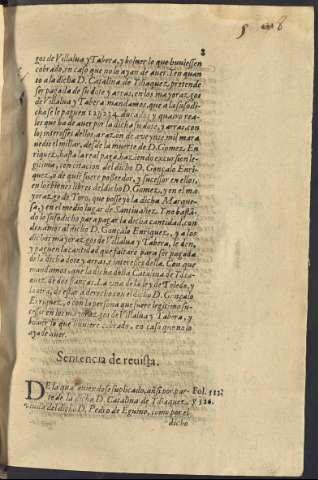 8
gos de Villalua y Tabera, y boluer lo que huuiessen
cobrado, en caso que no lo ayan de auer. I en quan
to a la dicha D. Catalina de Ydiaquez, pretende
ser pagada de su dote y arras, en los mayorazgos
de Villalua y Tabera: mandamos, que a la susodi-
cha se le paguen ducados y quatro rea-
les que ha de auer por la dicha su dote, y arras, con
los interesses dellos a razon de a veynte mil mara-
uedis el millar, desde la muerte de D. Gomez En
riquez, hasta la real paga, haziendo excursion le-
gitima, con citacion del dicho D. Gonçalo Enri-
quez, o de quiē fuere posseedor, y sucessor en ellos,
en los bienes libres del dicho D. Gomez, y en el ma
yorazgo de Toro, que posseyo la dicha Marque-
sa, y en el medio lugar de Santiuañez. Y no bastā-
do lo susodicho para pagar la dicha cantidad, con
denamos al dicho D. Gonçalo Enriquez, y a los
dichos mayorazgos de Villalua y Tabera, le den,
y paguen la cantidad que faltare para ser pagada
de la dicha dote y arras, e interesses della. Con que
mandamos, que la dicha doña Catalina de Ydia-
quez, dè dos fianças. La vna de la ley de Toledo, y
la otra, de estar a derecho con el dicho D. Gonçalo
Enriquez, o con la persona que fuere legitimo su-
cessor en los mayorazgos de Villalua y Tabera, y
boluer lo que huuiere cobrado, en caso que no lo
aya de auer.
Sentencia de reuista.
DE la qual auiendose suplicado, ansi por par-
te de la dicha D. Catalina de Ydiaquez,
y vista del dicho D. Pedro de Eguino, como por el
dicho
Fol. 112.
y 126.